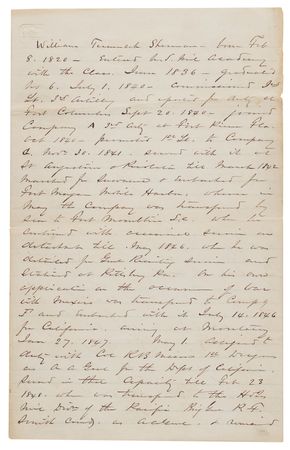 William Tecumseh Sherman - born Feb
8. 1820 - Entered U.S. Mil Academy
with the Class. June 1836 - graduated
No 6. July 1. 1840 - Commissioned 2nd
Lt. 3rd Artillery and reported for duty at
Fort Columbus Sept 20. 1840 - joined
Company A 3rd Arty at Fort Pierce Fla.
Oct 1840 - promoted 1st Lt. to Company
G. Nov. 30. 1841. served with it at
St Augustine & Picolata till March 1842
Marched for Savannah & embarked for
Fort Morgan Mobile Harbor, whence in
May the Company was transported by
sea to Fort Moultrie S.C. where he
continued with occasional service on
detached till May 1846. when he was
detailed for Genl Recruiting Service and
Stationed at Pittsburg Pa. On his own
application on the occurrence of War
with Mexico was transferred to Company
F and embarked with it July 14. 1846
for California. arriving at Monterey
Jan 27. 1847 May 1. Assigned to
duty with Col R B Mason 1st Dragoons
as A A Genl for the Dept of California.
Served in that Capacity till Feb 23
when was transferred to the Hd Qrs
Divn of the Pacific Brig Gen P. F.
Smith Comdg. as & remained